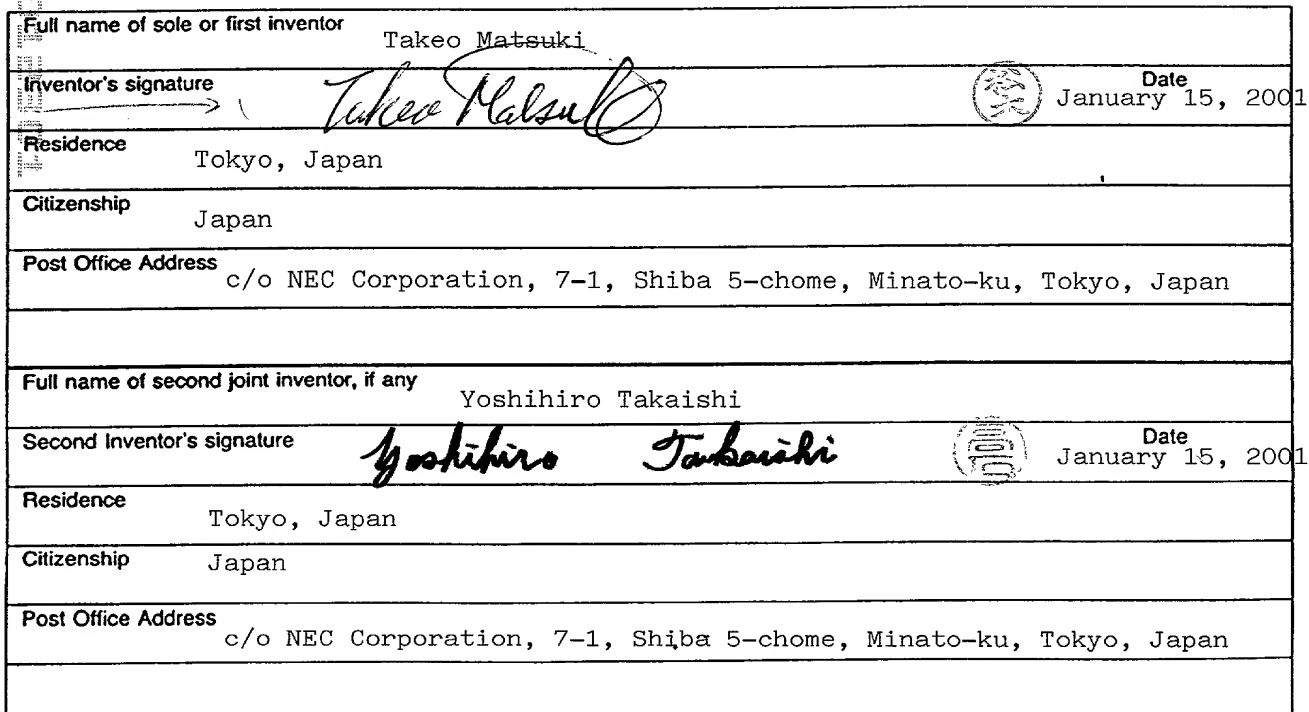 Full name of sole or first inventor
Takeo Matsuki
Inventor's signature
Takeo Matsuki
Date
January 15, 2001
Residence
Tokyo, Japan
Citizenship
Japan
Post Office Address
c/o NEC Corporation, 7-1, Shiba 5-chome, Minato-ku, Tokyo, Japan
Full name of second joint inventor, if any
Yoshihiro Takaishi
Second Inventor's signature
Yoshihiro Takaishi
Date
January 15, 2001
Residence
Tokyo, Japan
Citizenship
Japan
Post Office Address
c/o NEC Corporation, 7-1, Shiba 5-chome, Minato-ku, Tokyo, Japan